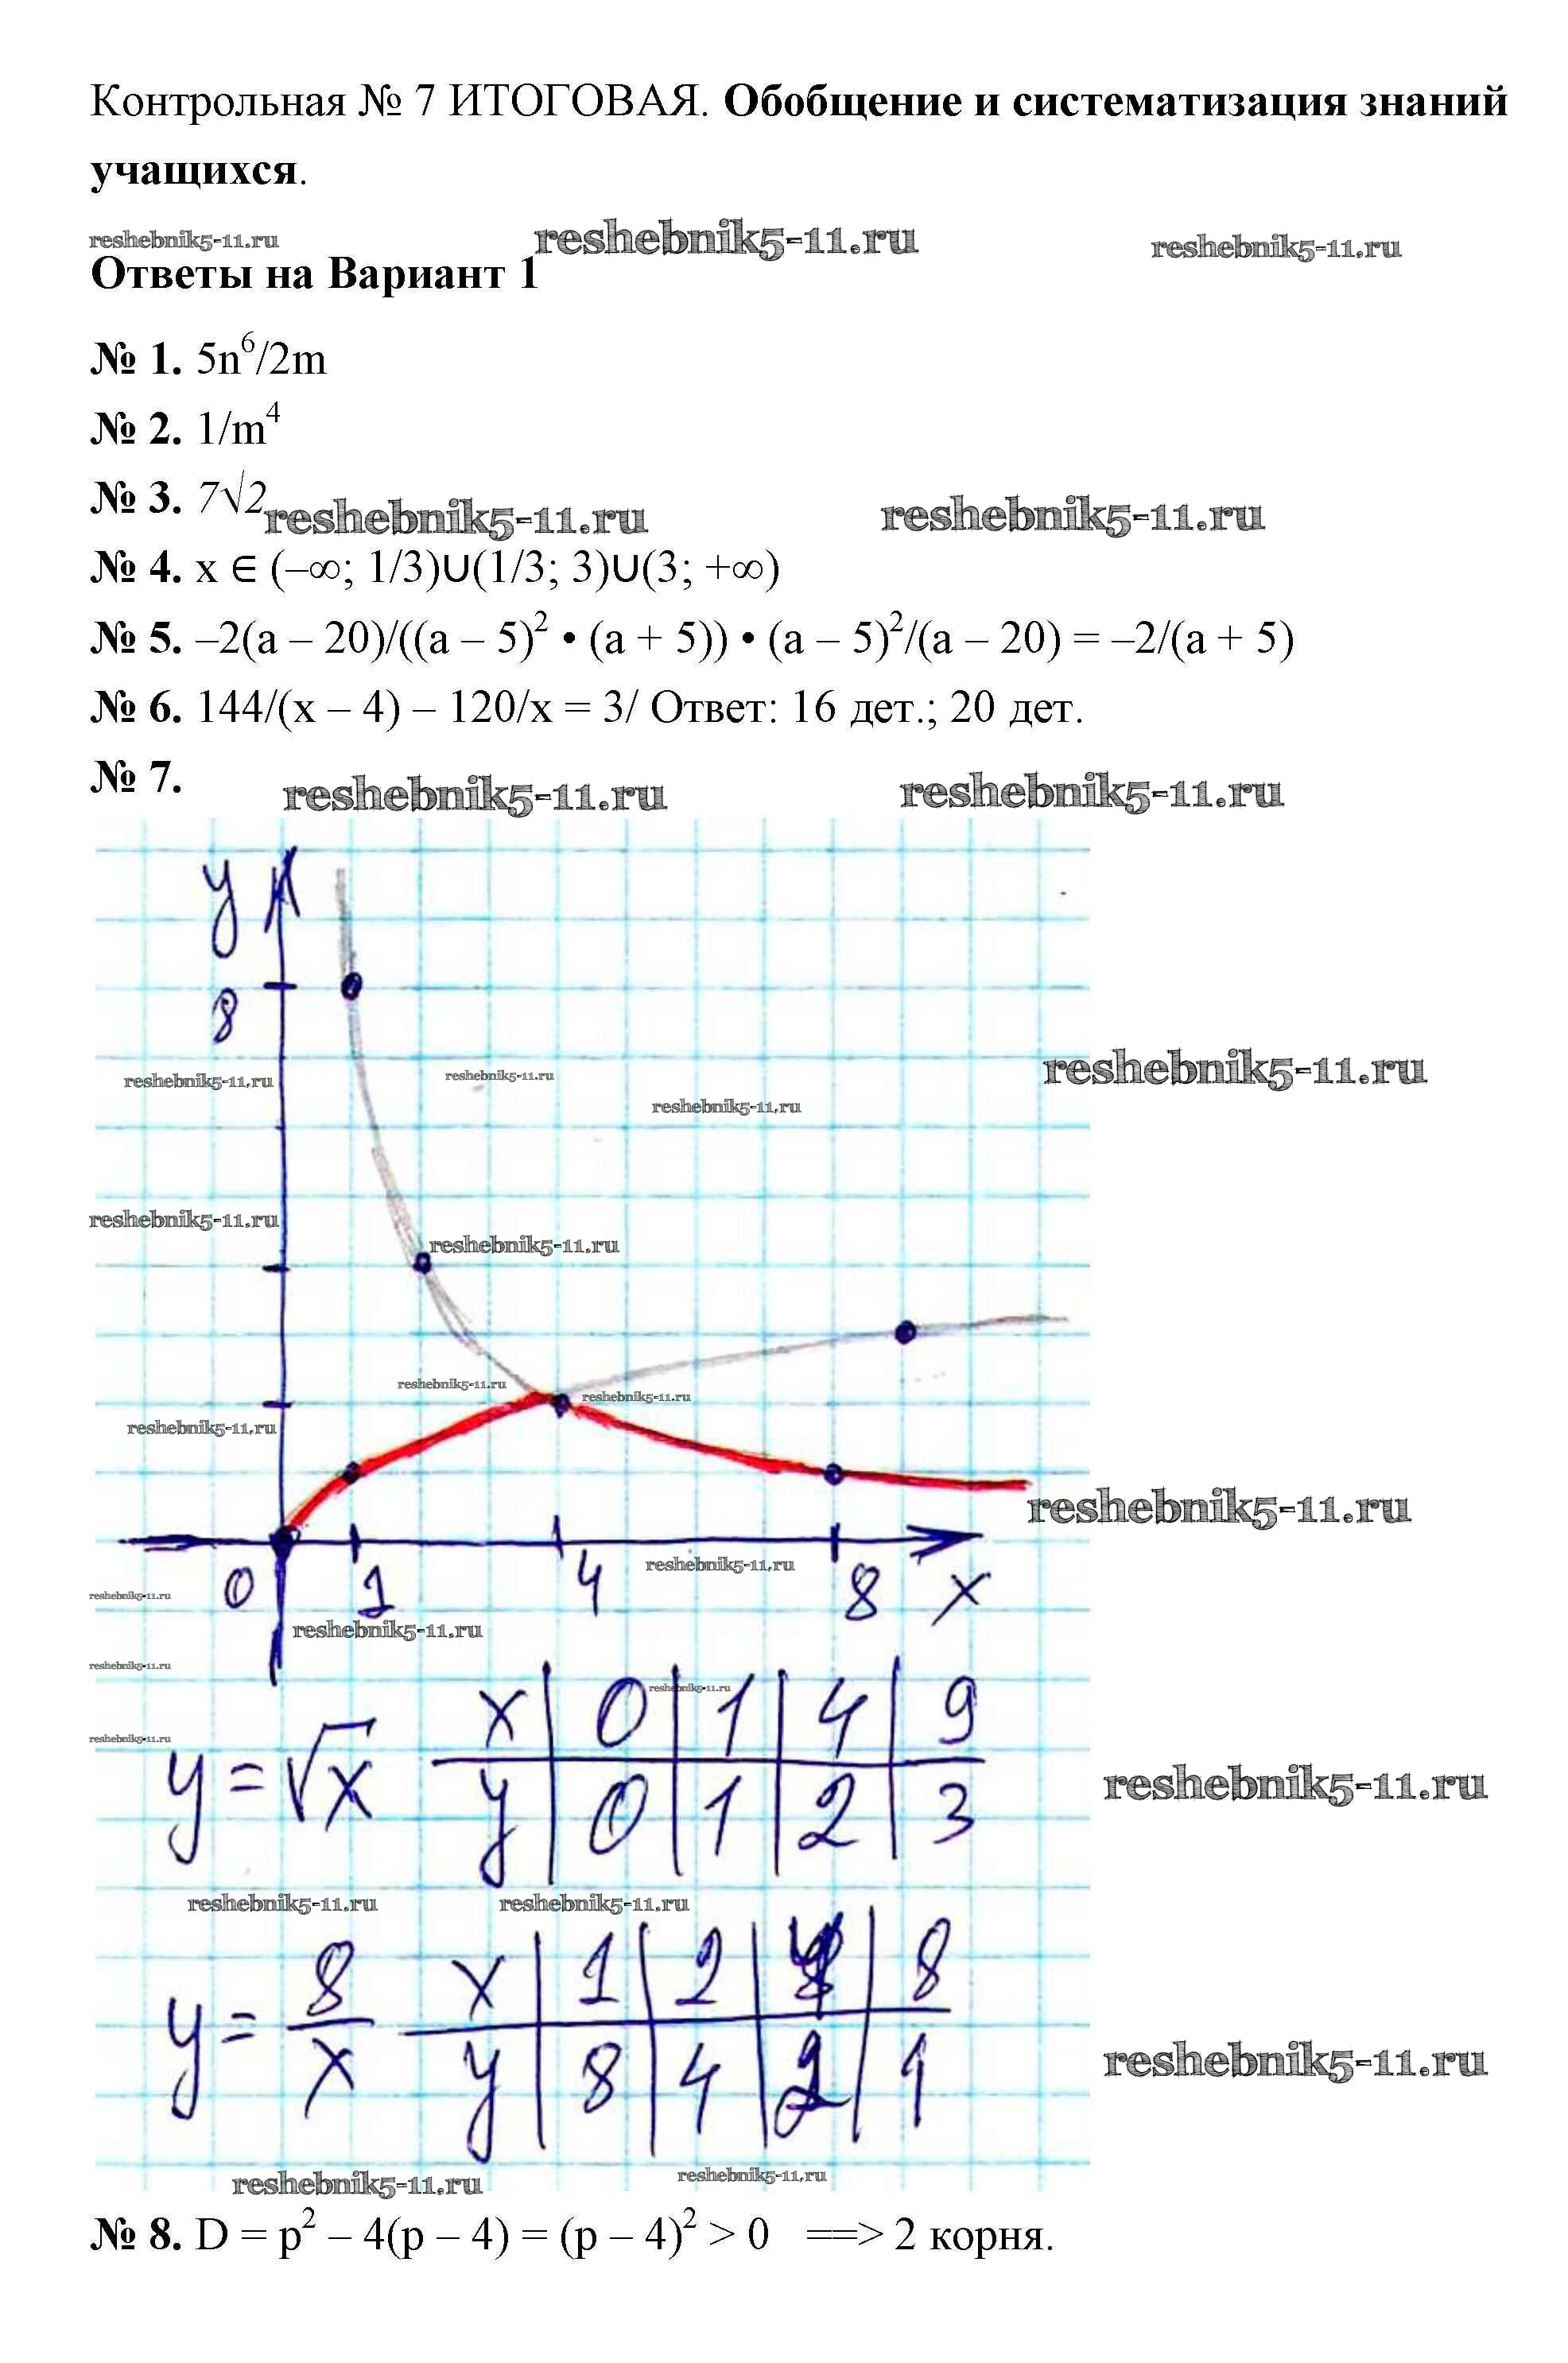 Контрольная № 7 ИТОГОВАЯ. Обобщение и систематизация знаний
учащихся.
reshebnik5-11.ru reshebnik5-11.ru reshebnik5-11.ru
Ответы на Вариант 1
№ 1. 5n⁶/2m
№ 2. 1/m⁴
№ 3. 7√2
reshebnik5-11.ru reshebnik5-11.ru
№ 4. x ∈ (–∞; 1/3)∪(1/3; 3)∪(3; +∞)
№ 5. –2(a – 20)/((a – 5)² • (a + 5)) • (a – 5)²/(a – 20) = –2/(a + 5)
№ 6. 144/(x – 4) – 120/x = 3/ Ответ: 16 дет.; 20 дет.
№ 7.
reshebnik5-11.ru reshebnik5-11.ru
y
8
reshebnik5-11.ru reshebnik5-11.ru reshebnik5-11.ru
reshebnik5-11.ru
reshebnik5-11.ru reshebnik5-11.ru
reshebnik5-11.ru reshebnik5-11.ru
reshebnik5-11.ru
reshebnik5-11.ru
reshebnik5-11.ru
0 1 4 8 x
reshebnik5-11.ru reshebnik5-11.ru
reshebnik5-11.ru reshebnik5-11.ru
reshebnik5-11.ru
y = √x
x 0 1 4 9
y 0 1 2 3
reshebnik5-11.ru
reshebnik5-11.ru reshebnik5-11.ru
y = 8/x
x 1 2 4 8
y 8 4 2 1
reshebnik5-11.ru
reshebnik5-11.ru reshebnik5-11.ru
№ 8. D = p² – 4(p – 4) = (p – 4)² > 0 ==> 2 корня.